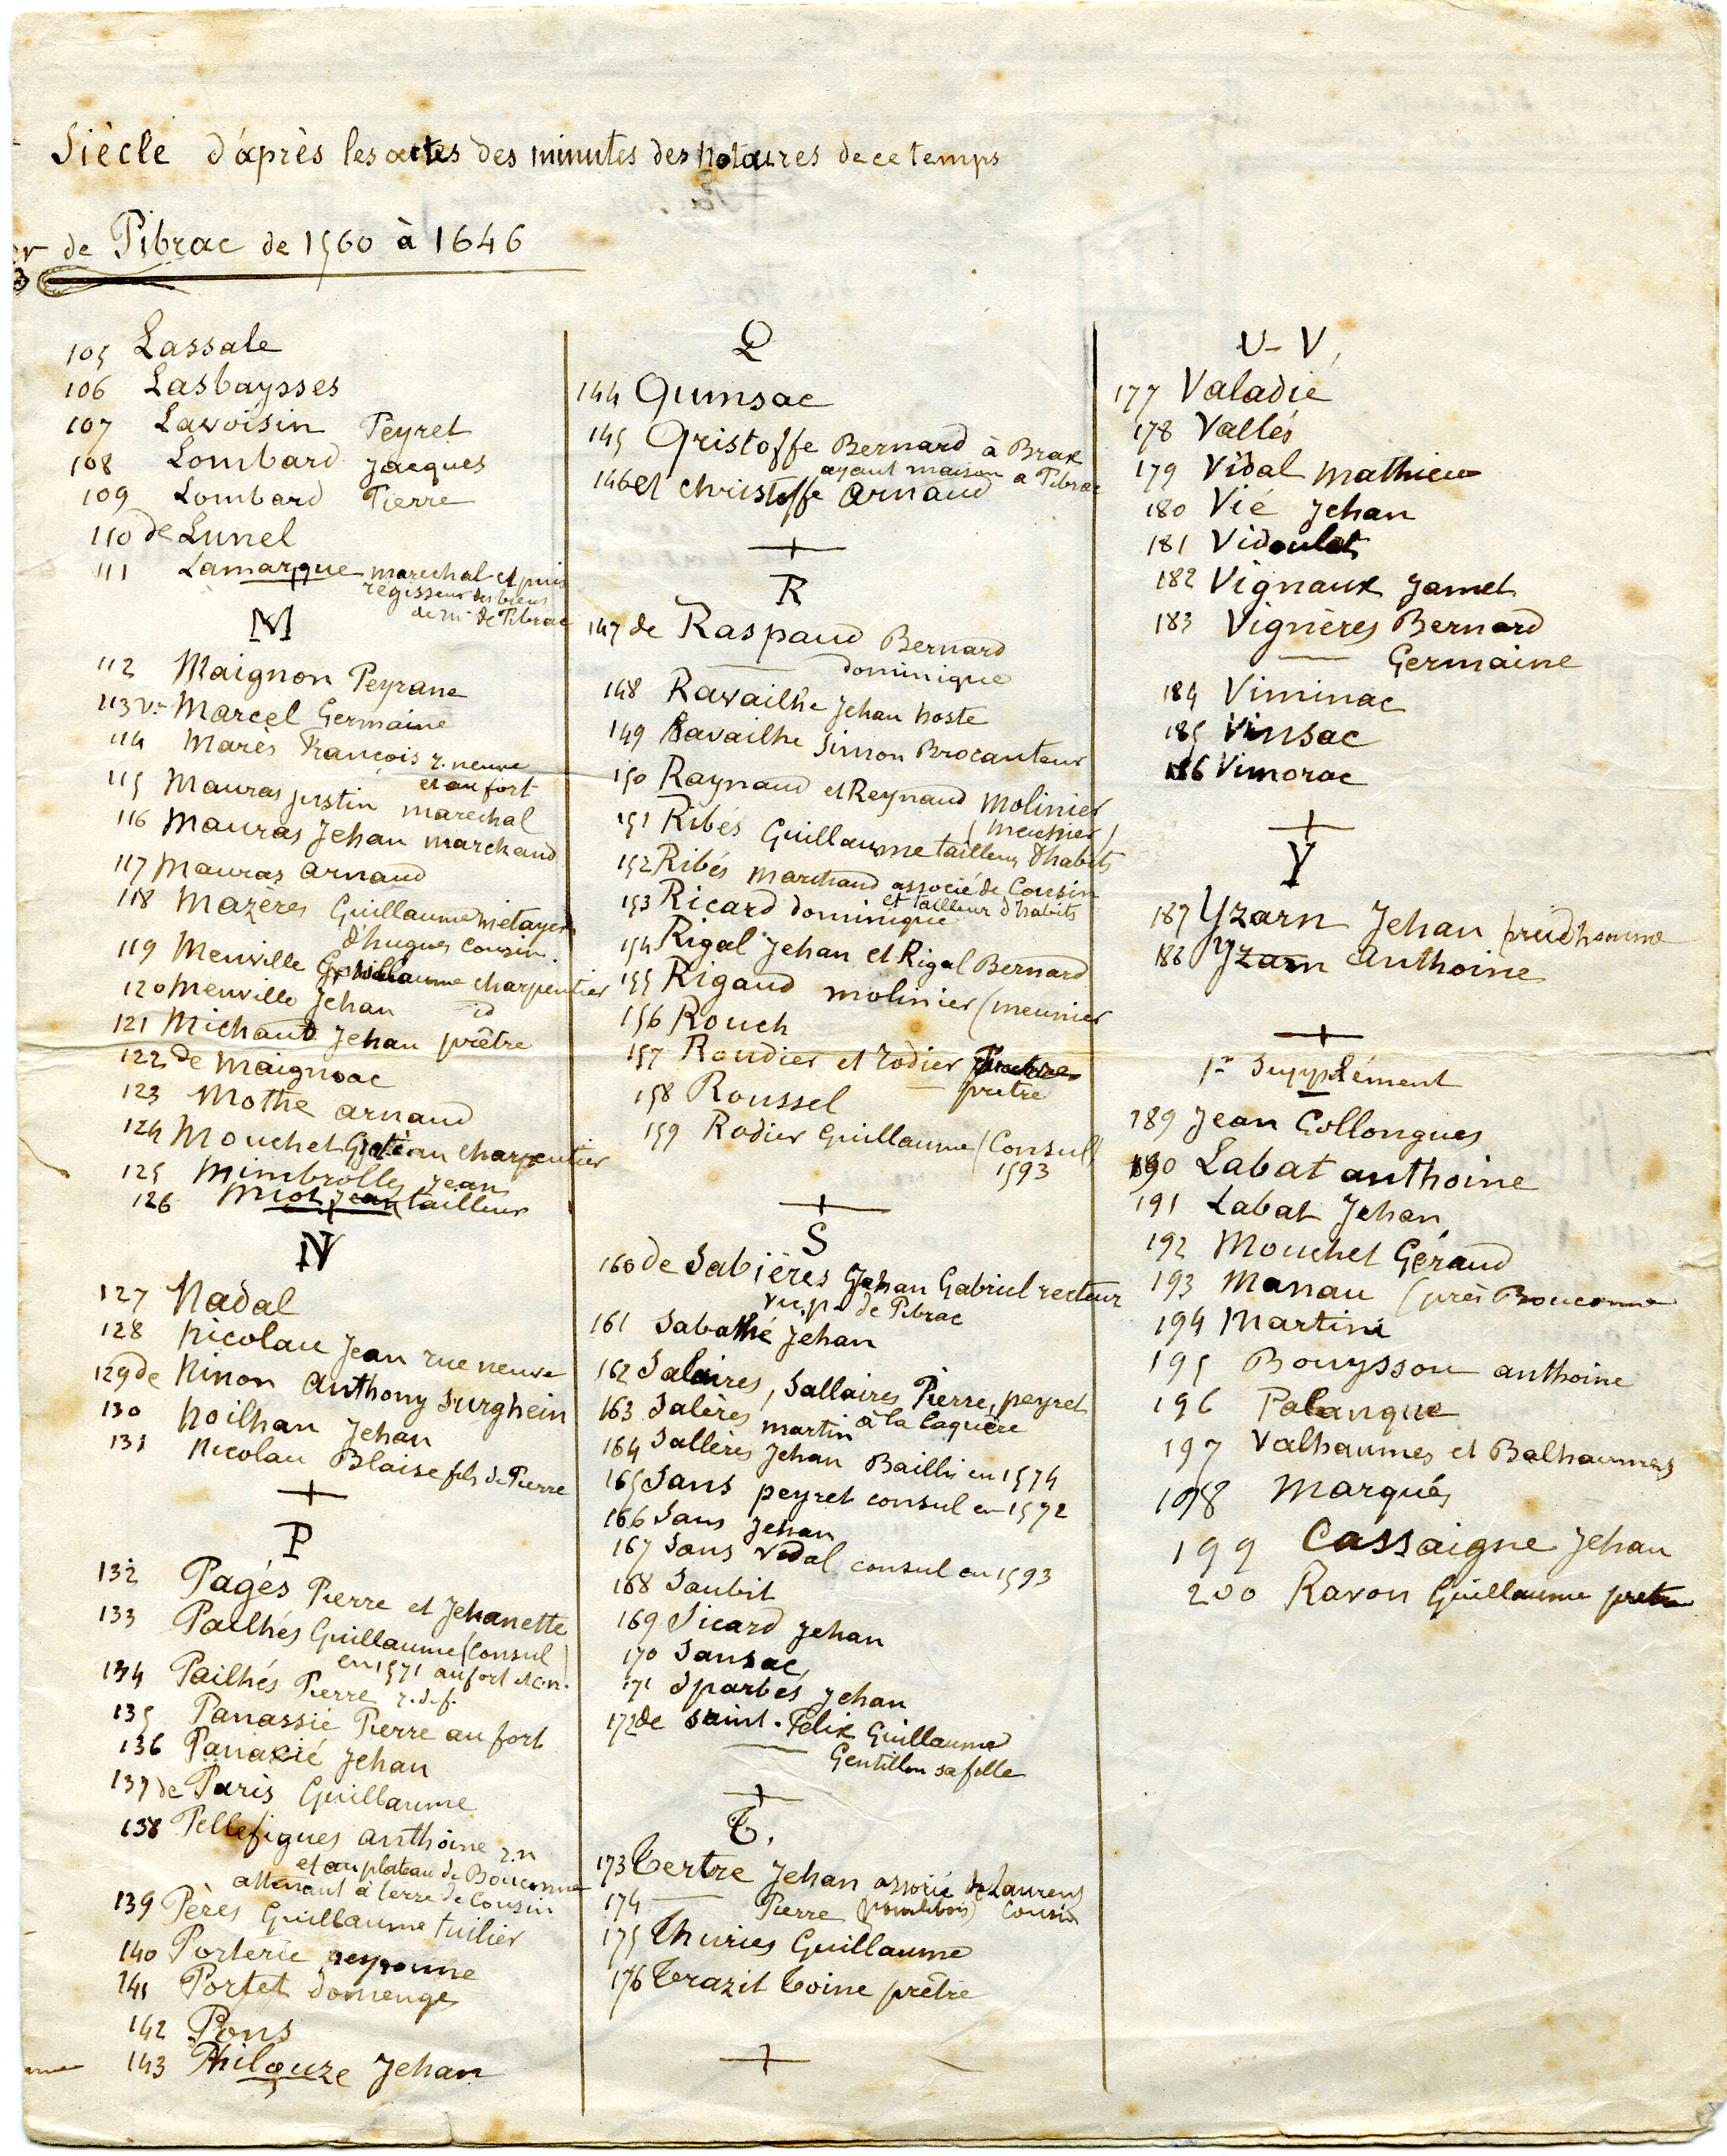 Siècle d'après les actes des minutes des notaires de ce temps
de Pibrac de 1560 à 1646
105 Lassale
106 Lasbaysses
107 Lavoisin Peyret
108 Lombard Jacques
109 Lombard Pierre
110 de Lunel
111 Lamarque marechal et puis
regisseur des biens
de mr de Pibrac
M
112 Maignon Peyrane
113 Vve Marcel Germaine
114 Marès François r. neuve
et au fort
115 Mauras justin marechal
116 Mauras Jehan marchand
117 Mauras Arnaud
118 Mazères Guillaume métayer
d'hugues Cousin.
119 Menville Guillaume charpentier
120 Menville Jehan id
121 Michaud Jehan prêtre
122 de Maignoac
123 Mothe arnaud
124 Mouchet charpentier
125 Mimbrolles Jean
126 Miot Jean tailleur
N
127 Nadal
128 Nicolau Jean rue neuve
129 de Ninon Anthony Surghein
130 Noilhan Jehan
131 Nicolau Blaise fils de Pierre
P
132 Pagés Pierre et Jehanette
133 Pailhés Guillaume (Consul)
en 1571 au fort et c.n.
134 Pailhés Pierre r.d.f.
135 Panassié Pierre au fort
136 Panaxié Jehan
137 de Paris Guillaume
138 Pellefigues anthoine r.n
et au plateau de Bouconne
attenant à terre de Cousin
139 Pères Guillaume tuilier
140 Porterie peyronne
141 Portet Domenge
142 Pons
143 Philouze Jehan
Q
144 Qumsac
145 Qristoffe Bernard à Brax
ayant maison a Pibrac
146 et Christoffe Arnaud
R
147 de Raspaud Bernard
— Dominique
148 Ravailhe Jehan hoste
149 Ravailhe Simon Brocanteur
150 Raynaud et Reynaud Molinier
(meunier)
151 Ribés Guillaume tailleur d'habits
152 Ribés Marchand associé de Cousin
et tailleur d'habits
153 Ricard Dominique
154 Rigal Jehan et Rigal Bernard
155 Rigaud molinier (meunier
156 Rouch
157 Roudier et rodier
prêtre
158 Roussel
159 Rodier Guillaume (Consul)
1593
S
160 de Sabières Jehan Gabriel recteur
de Pibrac
161 Sabathé Jehan
162 Salaires, Sallaires Pierre, peyret
163 Salères martin à la laquère
164 Sallères Jehan Bailli en 1574
165 Sans peyret consul en 1572
166 Sans Jehan
167 Sans Vidal consul en 1593
168 Saubit
169 Sicard Jehan
170 Sansac
171 Sparbés Jehan
172 de Saint-Félix Guillaume
— Gentillon sa fille
T.
173 Tertre Jehan associé de Laurens
174 — Pierre Cousin
175 Thuries Guillaume
176 Trazit Toine prêtre
U - V
177 Valadié
178 Vallés
179 Vidal Mathieu
180 Vié Jehan
181 Vidoulat
182 Vignaux Jamet
183 Vignères Bernard
— Germaine
184 Viminac
185 Vinsac
186 Vimorac
Y
187 Yzarn Jehan prudhomme
188 Yzarn Anthoine
1er Supplément
189 Jean Collongues
190 Labat anthoine
191 Labat Jehan
192 Mouchet Géraud
193 Manau (près Bouconne
194 Martini
195 Bouyssou anthoine
196 Palanque
197 Valhaumes et Balhaumes
198 Marqués
199 Cassaigne Jehan
200 Ravon Guillaume pretre